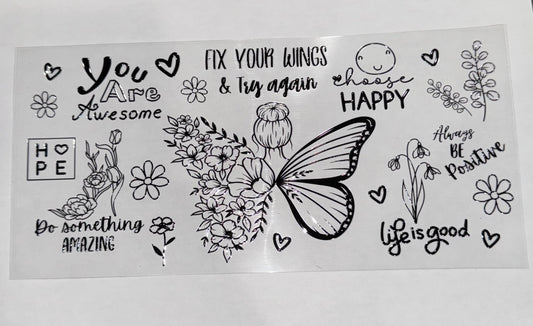 You
Are
Awesome
FIX YOUR WINGS
& Try again
choose
HAPPY
Always
BE
Positive
HO
PE
Do something
AMAZING
life is good